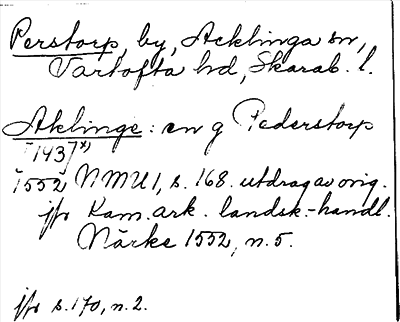 Perstorp, by, Acklinga sn,
Vartofta hd, Skarab. l.
Aklinge: en g Pederstorp
[1437] x)
1552 NMU 1, s. 168. utdrag av orig.
jfr Kam. ark. landsk.-handl.
Närke 1552, n. 5.
jfr s. 170, n. 2.